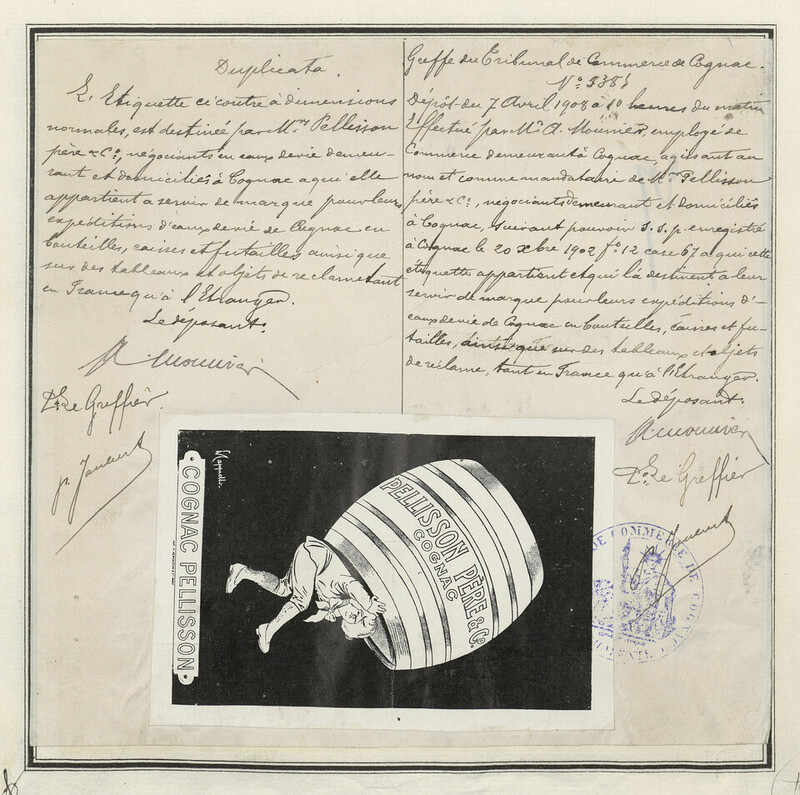 Duplicata.
L'Etiquette ci contre à dimensions
normales, est destinée par Mrs Pellisson
père & Cie, négociants en eaux de vie demeu-
rant et domiciliés à Cognac a qui elle
appartient a servir de marque pour leurs
expéditions d'eaux de vie de Cognac en
bouteilles, caisses et futailles ainsi que
sur des tableaux et objets de reclame tant
en France qu'à l'Etranger.
Le déposant.
A Mounier
Le Greffier.
Greffe du Tribunal de Commerce de Cognac.
Dépôt du 7 Avril 1908 à 10 heures du matin
Effectué par Mr A. Mounier, employé de
Commerce demeurant à Cognac, agissant au
nom et comme mandataire de Mrs Pellisson
père & Cie, négociants demeurant et domiciliés
à Cognac, suivant pouvoir S. S. p. enregistré
à Cognac le 20 Xbre 1902 fo 12 case 67 a qui cette
étiquette appartient et qui la destinent a leur
servir de marque pour leurs expéditions d'-
eaux de vie de Cognac en bouteilles, caisses et fu-
tailles, ainsi que sur des tableaux et objets
de réclame, tant en France qu'à l'Etranger.
Le déposant.
A Mounier
Le Greffier
COGNAC PELLISSON
PELLISSON PÈRE & Co.
COGNAC
DE COMMERCE DE COGNAC